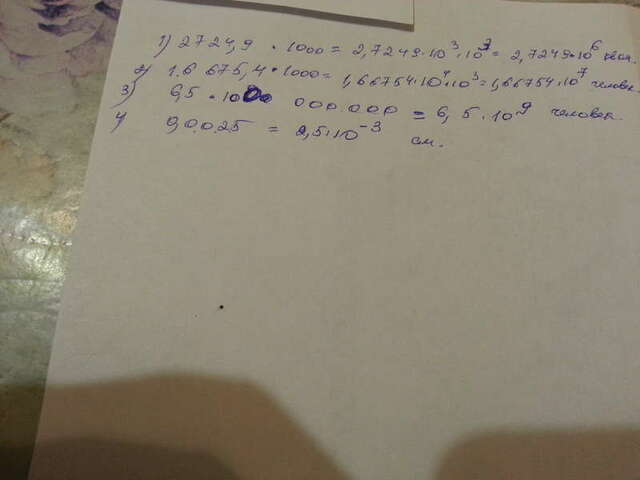 1) 2724,9 · 1000 = 2,7249·10³·10³ = 2,7249·10⁶ квкм.
2) 16675,4 · 1000 = 1,66754·10⁴·10³ = 1,66754·10⁷ человек.
3) 6,5 · 1000 000 000 = 6,5·10⁹ человек.
4) 0,0025 = 2,5·10⁻³ см.